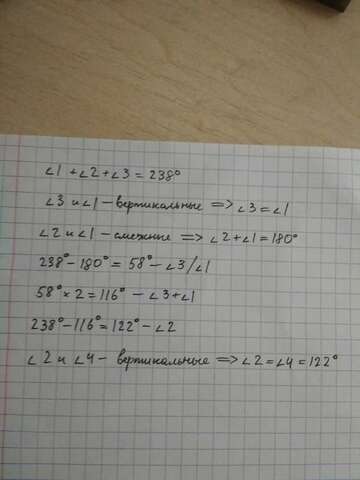 ∠1 + ∠2 + ∠3 = 238°
∠3 и ∠1 – вертикальные => ∠3 = ∠1
∠2 и ∠1 – смежные => ∠2 + ∠1 = 180°
238° – 180° = 58° – ∠3/∠1
58° × 2 = 116° – ∠3 + ∠1
238° – 116° = 122° – ∠2
∠2 и ∠4 – вертикальные => ∠2 = ∠4 = 122°